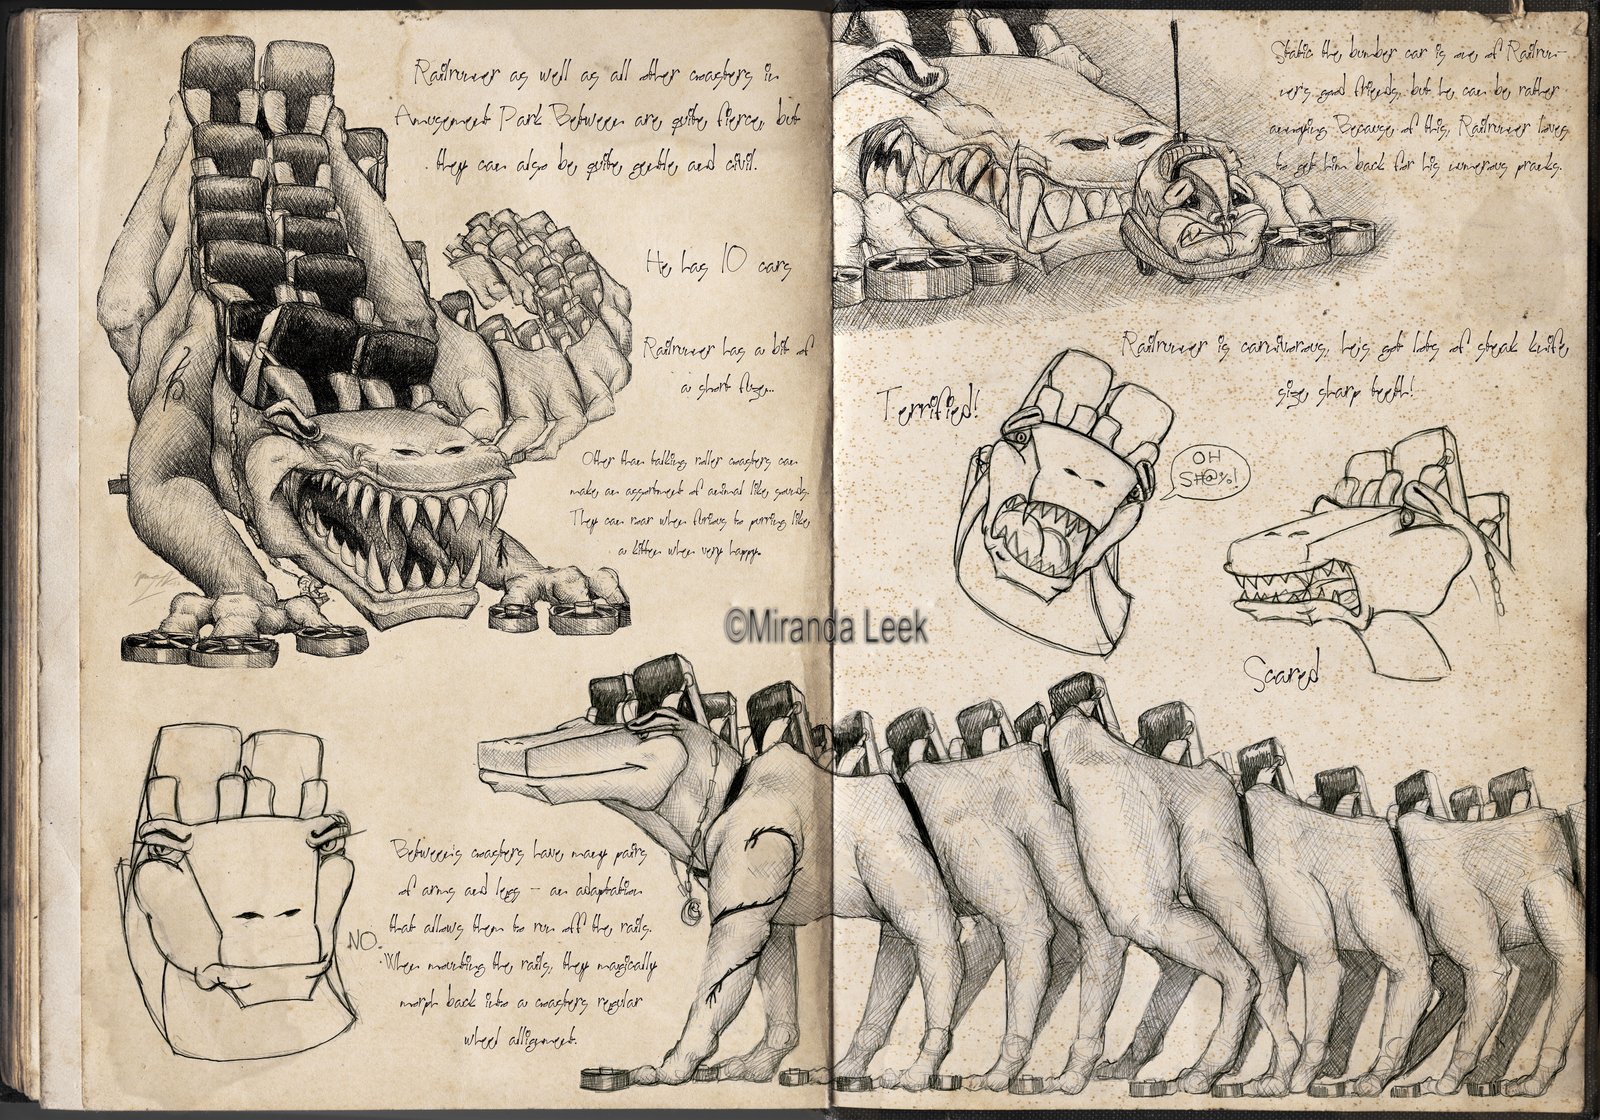 Railrunner as well as all other coasters in
Amusement Park Between are quite fierce, but
they can also be quite gentle and civil.
He has 10 cars
Railrunner has a bit of
a short fuze...
Other than talking roller coasters can
make an assortment of animal like sounds.
They can roar when furious to purring like
a kitten when very happy.
NO.
Between's coasters have many pairs
of arms and legs - an adaptation
that allows them to run off the rails.
When mounting the rails, they magically
morph back into a coasters regular
wheel allignment.
Static the bumber car is one of Railrun-
ners good friends, but he can be rather
annoying. Because of this, Railrunner loves
to get him back for his numerous pranks.
Railrunner is carnivorous, he's got lots of steak knife
size sharp teeth!
Terrified!
OH
SH@%!
Scared
©Miranda Leek